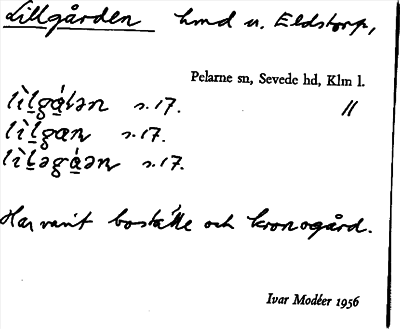 Lillgården hmd u. Eldstorp,
Pelarne sn, Sevede hd, Klm l.
s. 17. //
s. 17.
s. 17.
Har varit boställe och kronogård.
Ivar Modéer 1956